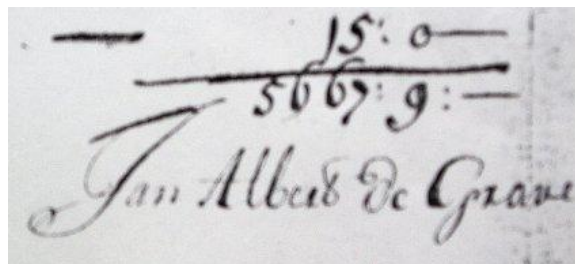 — 15: 0 —
5667: 9: —
Jan Albert de Grave